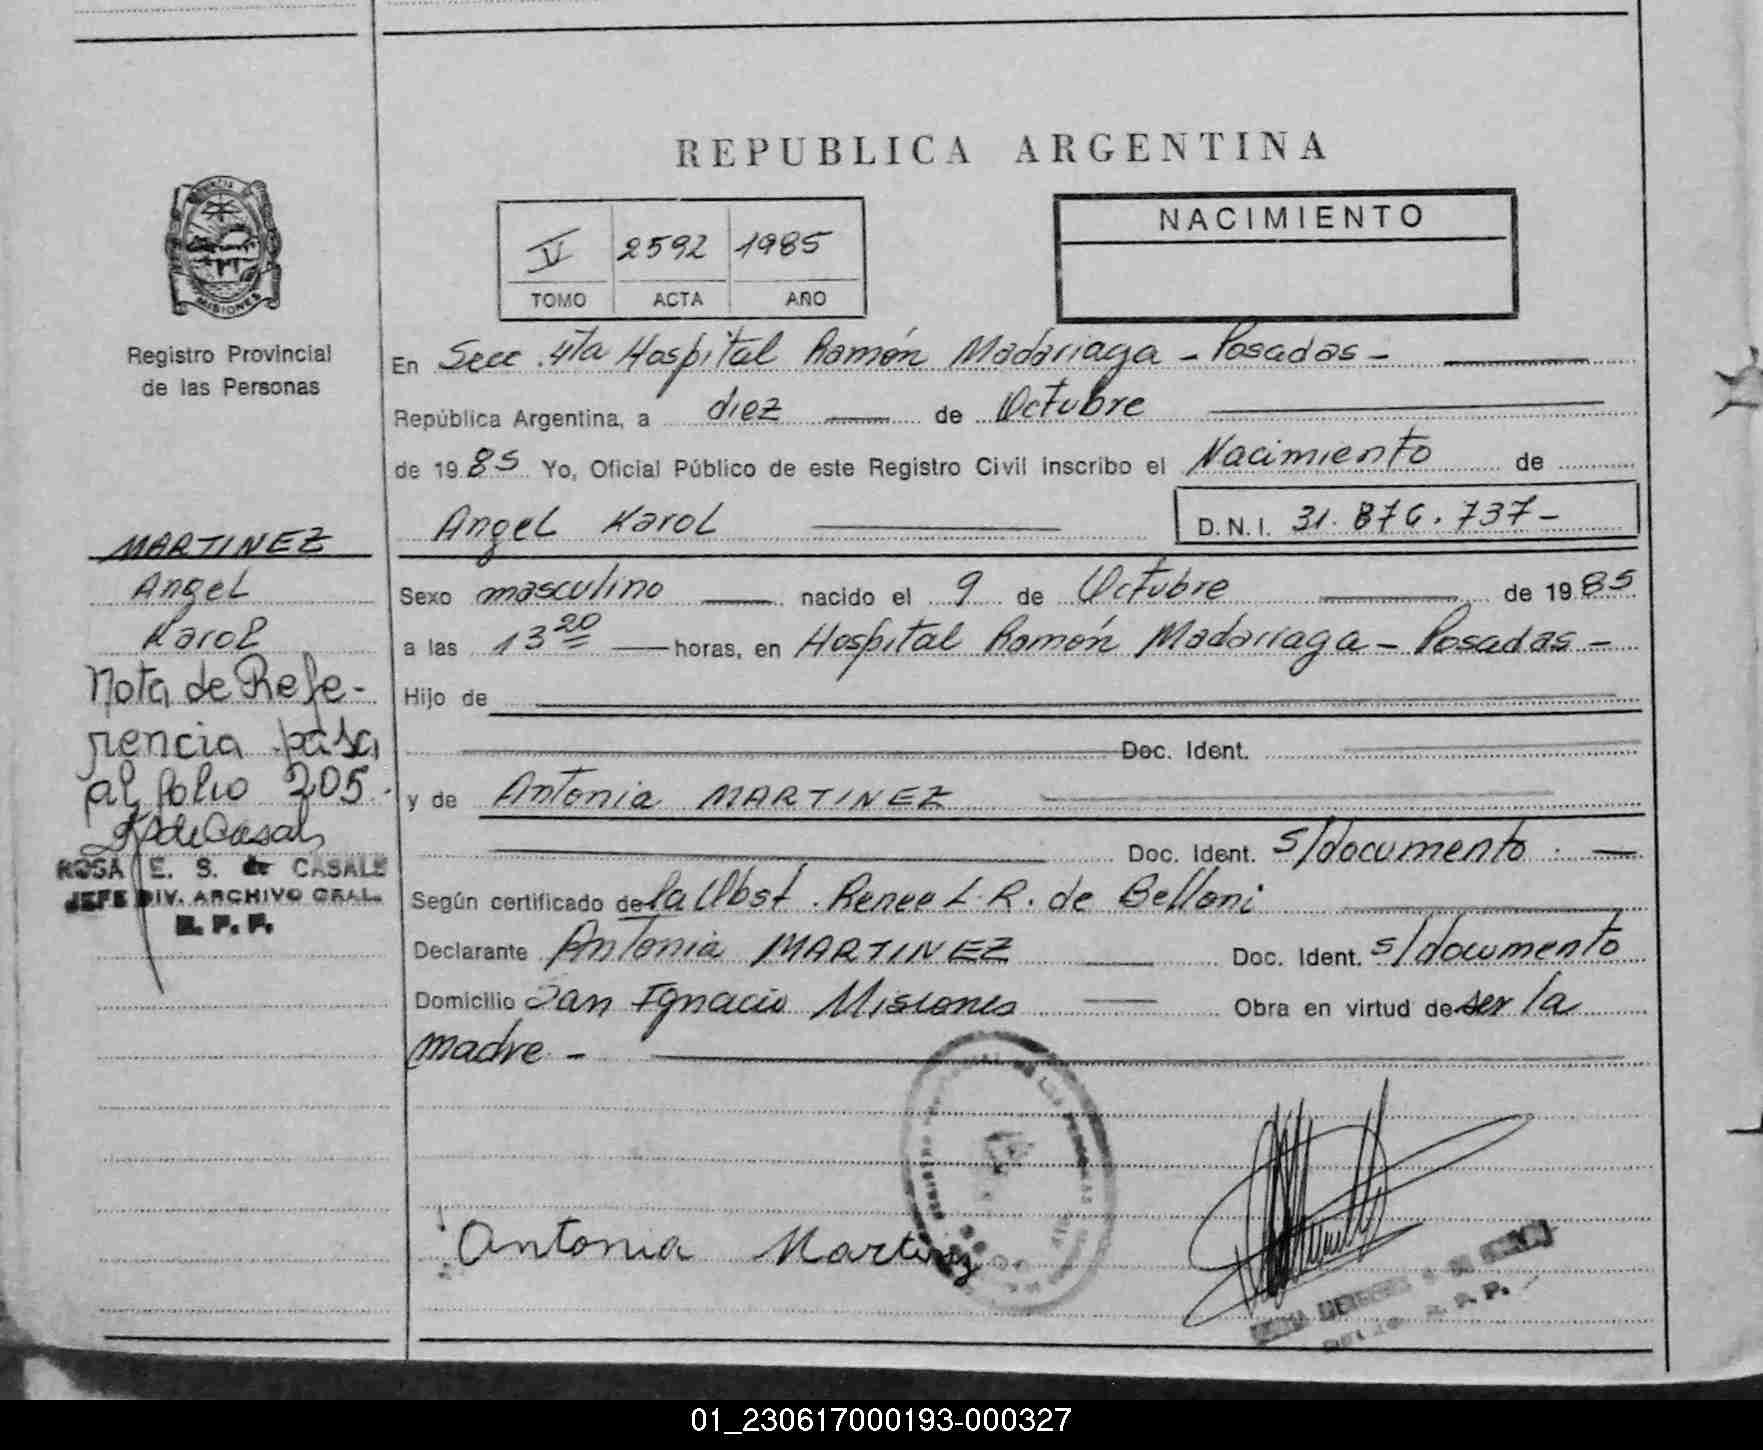 REPUBLICA ARGENTINA
PROVINCIA
MISIONES
Registro Provincial
de las Personas
IV 2592 1985
TOMO ACTA AÑO
NACIMIENTO
En Secc. 4ta Hospital Ramón Madariaga - Posadas -
República Argentina, a diez de Octubre
de 1985 Yo, Oficial Público de este Registro Civil inscribo el Nacimiento de
Angel Karol D.N.I. 31.876.737-
Sexo masculino nacido el 9 de Octubre de 1985
a las 13 20 horas, en Hospital Ramón Madariaga - Posadas -
Hijo de
Doc. Ident.
y de Antonia MARTINEZ
Doc. Ident. s/documento.
Según certificado de la Obst. Renee L. R. de Belloni
Declarante Antonia MARTINEZ Doc. Ident. s/documento
Domicilio San Ignacio Misiones Obra en virtud de ser la
madre -
Antonia Martinez
MARTINEZ
Angel
Karol
Nota de Refe-
rencia pasa
al folio 205.
de Casals
ROSA E. S. de CASALS
JEFE DIV. ARCHIVO GRAL.
R. P. P.
R. P. P.
01_230617000193-000327